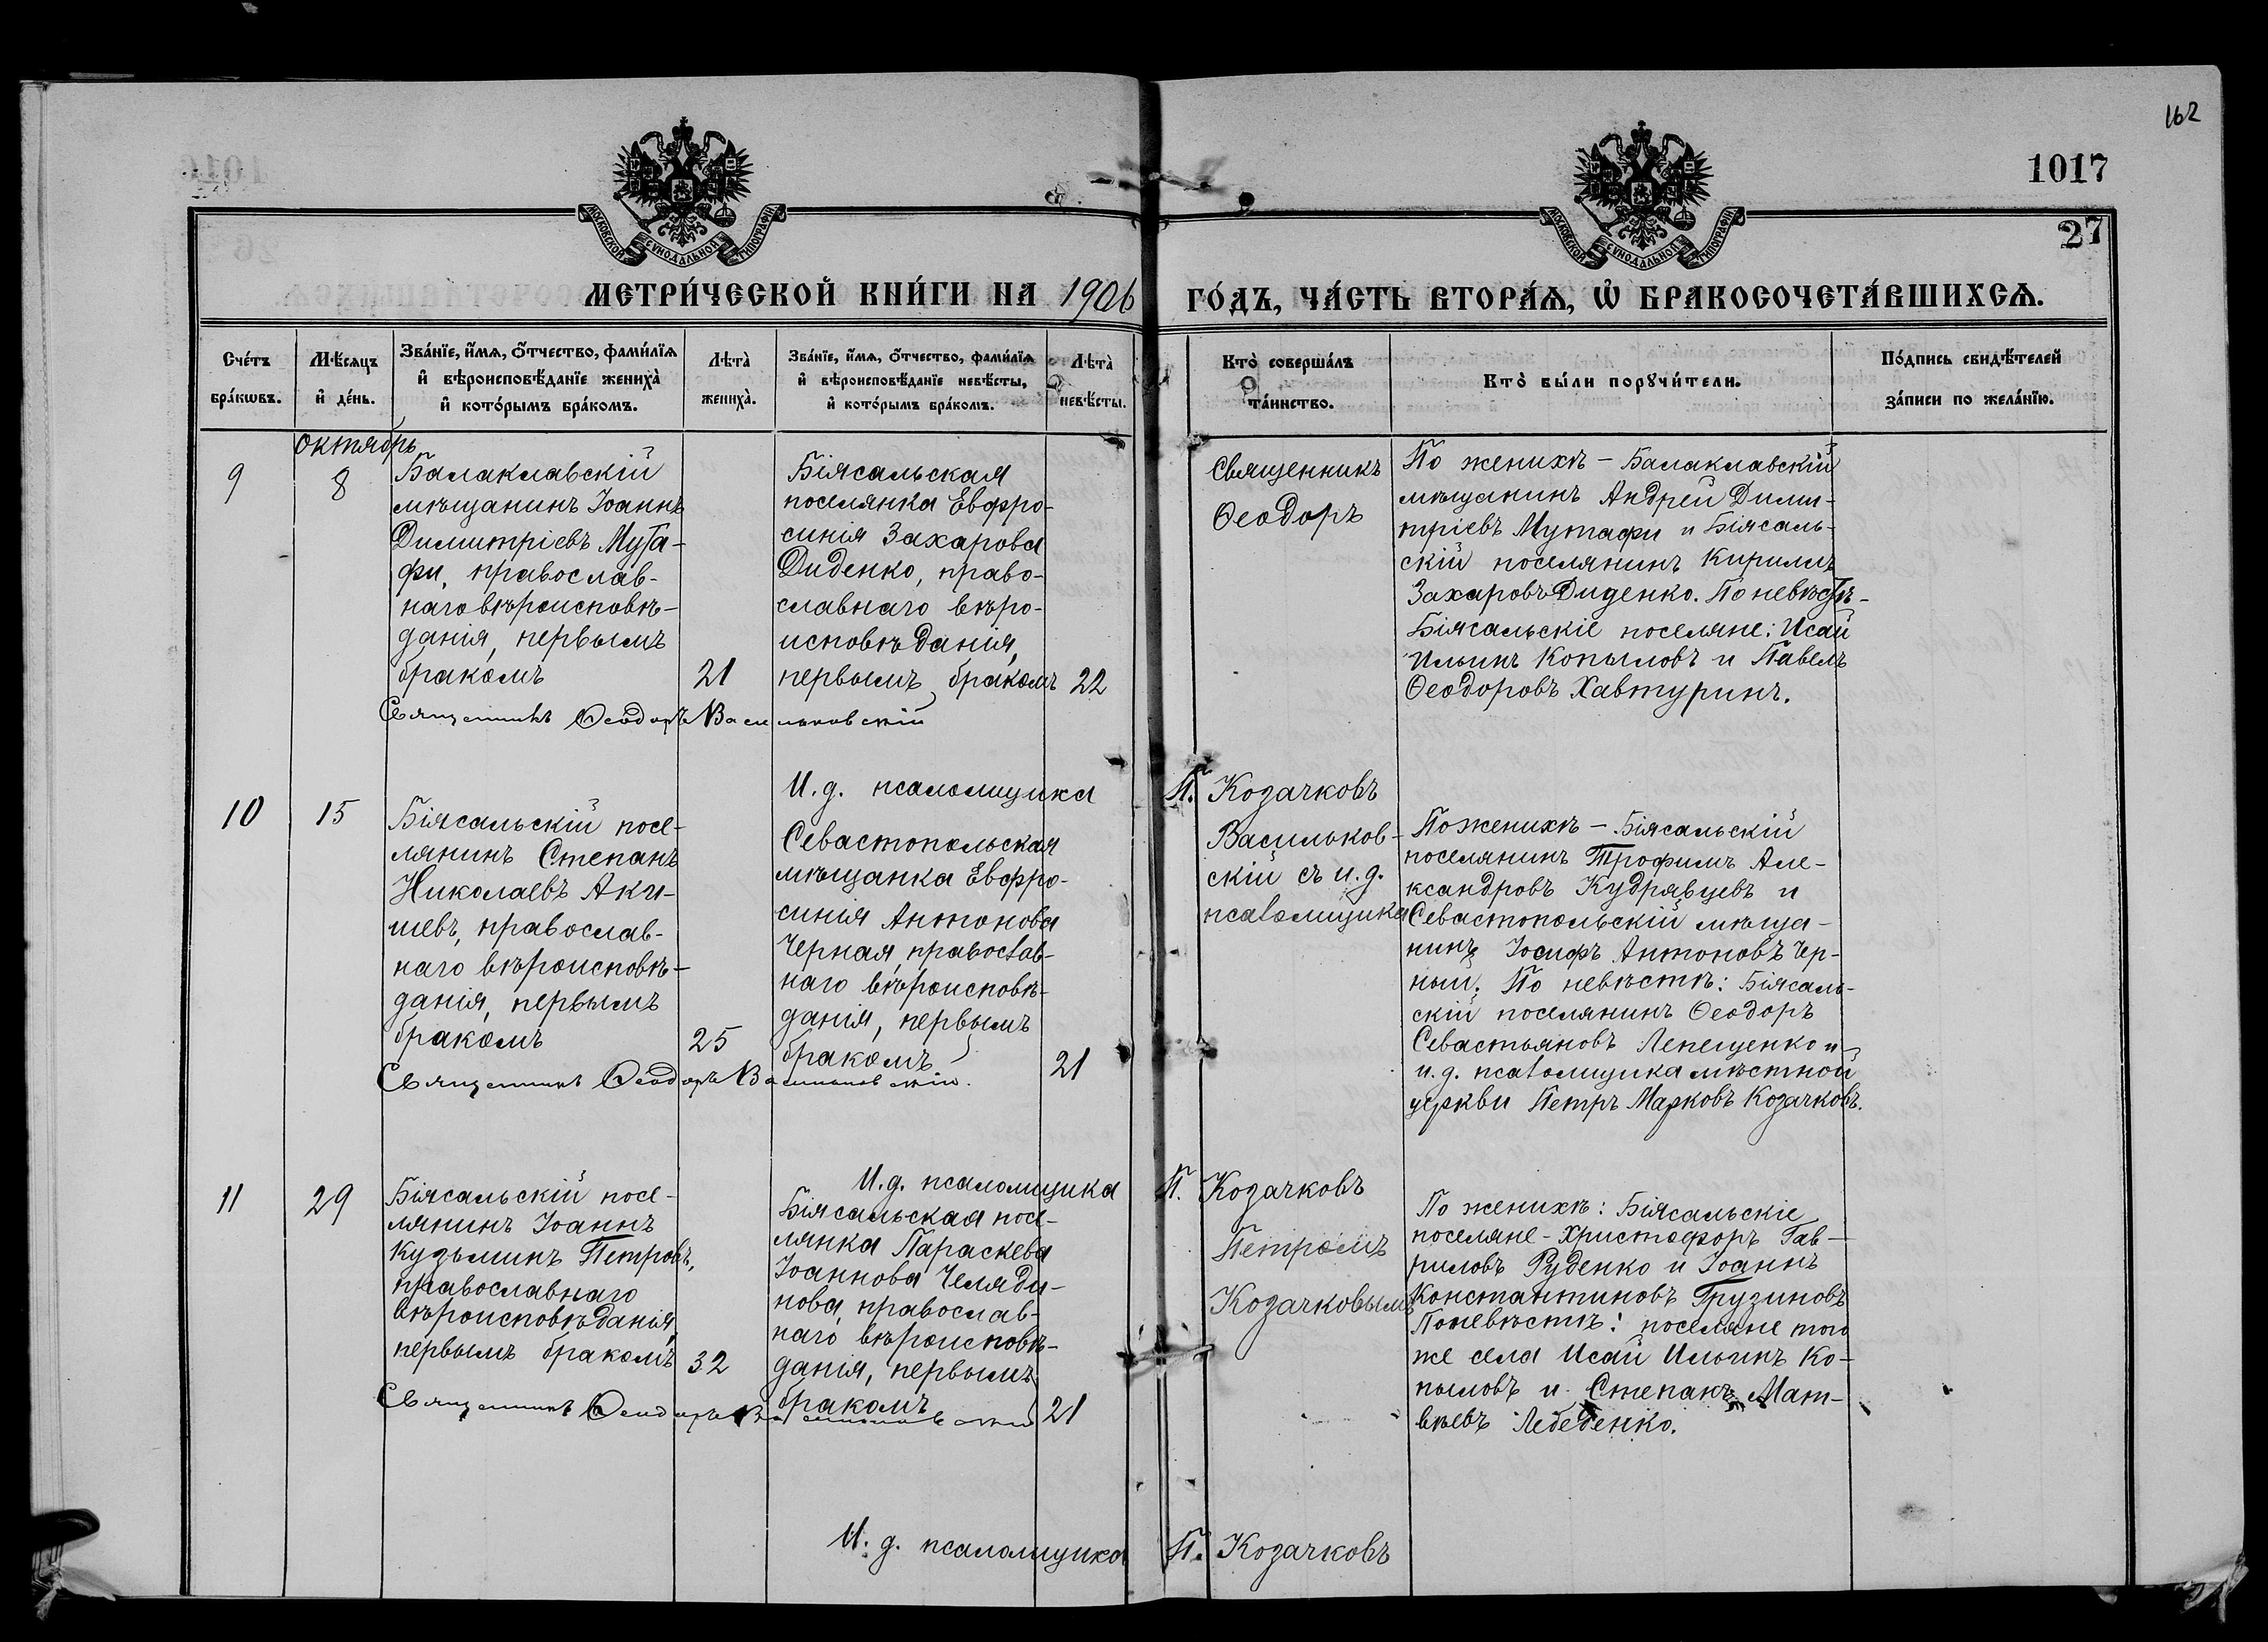 162
1017
27
МОСКОВСКОЙ СѴНОДАЛЬНОЙ ТИПОГРАФІИ
МОСКОВСКОЙ СѴНОДАЛЬНОЙ ТИПОГРАФІИ
МЕТРИ́ЧЕСКОЙ КНИ́ГИ НА 1906 ГО́ДЪ, ЧА́СТЬ ВТОРА́Ѧ, Ѡ҆ БРАКОСОЧЕТА́ВШИХСѦ.
Сче́тъ
бра́кѡвъ.
Мѣ́сѧцъ
и҆ де́нь.
Зва́нїе, и҆́мѧ, ѻ҆́тчество, фами́лїѧ
и҆ вѣроисповѣ́данїе жениха̀
и҆ кото́рымъ бра́комъ.
Лѣта̀
жениха̀.
Зва́нїе, и҆́мѧ, ѻ҆́тчество, фами́лїѧ
и҆ вѣроисповѣ́данїе невѣ́сты,
и҆ кото́рымъ бра́комъ.
Лѣта̀
невѣ́сты.
Кто̀ соверша́лъ
та́инство.
Кто̀ бы́ли порꙋчи́тели.
По́дпись свидѣ́телей
за́писи по жела́нїю.
октябрь
9
8
Балаклавскій
мѣщанинъ Іоаннъ
Димитріевъ Мута-
фи, православ-
наго вѣроисповѣ-
данія, первымъ
бракомъ
21
Біясальская
поселянка Евфро-
синія Захарова
Диденко, право-
славнаго вѣро-
исповѣданія,
первымъ бракомъ
22
Священникъ
Ѳеодоръ
По женихѣ - Балаклавскій
мѣщанинъ Андрей Дими-
тріевъ Мутафи и Біясаль-
скій поселянинъ Кириллъ
Захаровъ Диденко. По невѣстѣ -
Біясальскіе поселяне: Исай
Ильинъ Копыловъ и Павелъ
Ѳеодоровъ Хавтуринъ.
Священникъ Ѳеодоръ Васильковскій
И. д. псаломщика П. Козачковъ
10
15
Біясальскій посе-
лянинъ Степанъ
Николаевъ Аки-
шевъ, православ-
наго вѣроисповѣ-
данія, первымъ
бракомъ
25
Севастопольская
мѣщанка Евфро-
синія Антонова
Черная, православ-
наго вѣроисповѣ-
данія, первымъ
бракомъ
21
Васильков-
скій съ и. д.
псаломщика
По женихѣ - Біясальскій
поселянинъ Трофимъ Але-
ксандровъ Кудрявцевъ и
Севастопольскій мѣща-
нинъ Іосифъ Антоновъ Чер-
ный. По невѣстѣ: Біясаль-
скій поселянинъ Ѳеодоръ
Севастьяновъ Лепещенко и
и. д. псаломщика мѣстной
церкви Петръ Марковъ Козачковъ.
Священникъ Ѳеодоръ Васильковскій.
И. д. псаломщика П. Козачковъ
11
29
Біясальскій посе-
лянинъ Іоаннъ
Кузьминъ Петровъ,
православнаго
вѣроисповѣданія,
первымъ бракомъ
32
Біясальская посе-
лянка Параскева
Іоаннова Челяди-
нова, православ-
наго вѣроисповѣ-
данія, первымъ
бракомъ
21
Петромъ
Козачковымъ
По женихѣ: Біясальскіе
поселяне - Христофоръ Гав-
риловъ Руденко и Іоаннъ
Константиновъ Грузиновъ
По невѣстѣ: поселяне того
же села Исай Ильинъ Ко-
пыловъ и Степанъ Мат-
вѣевъ Лебеденко.
Священникъ Ѳеодоръ Васильковскій
И. д. псаломщика П. Козачковъ